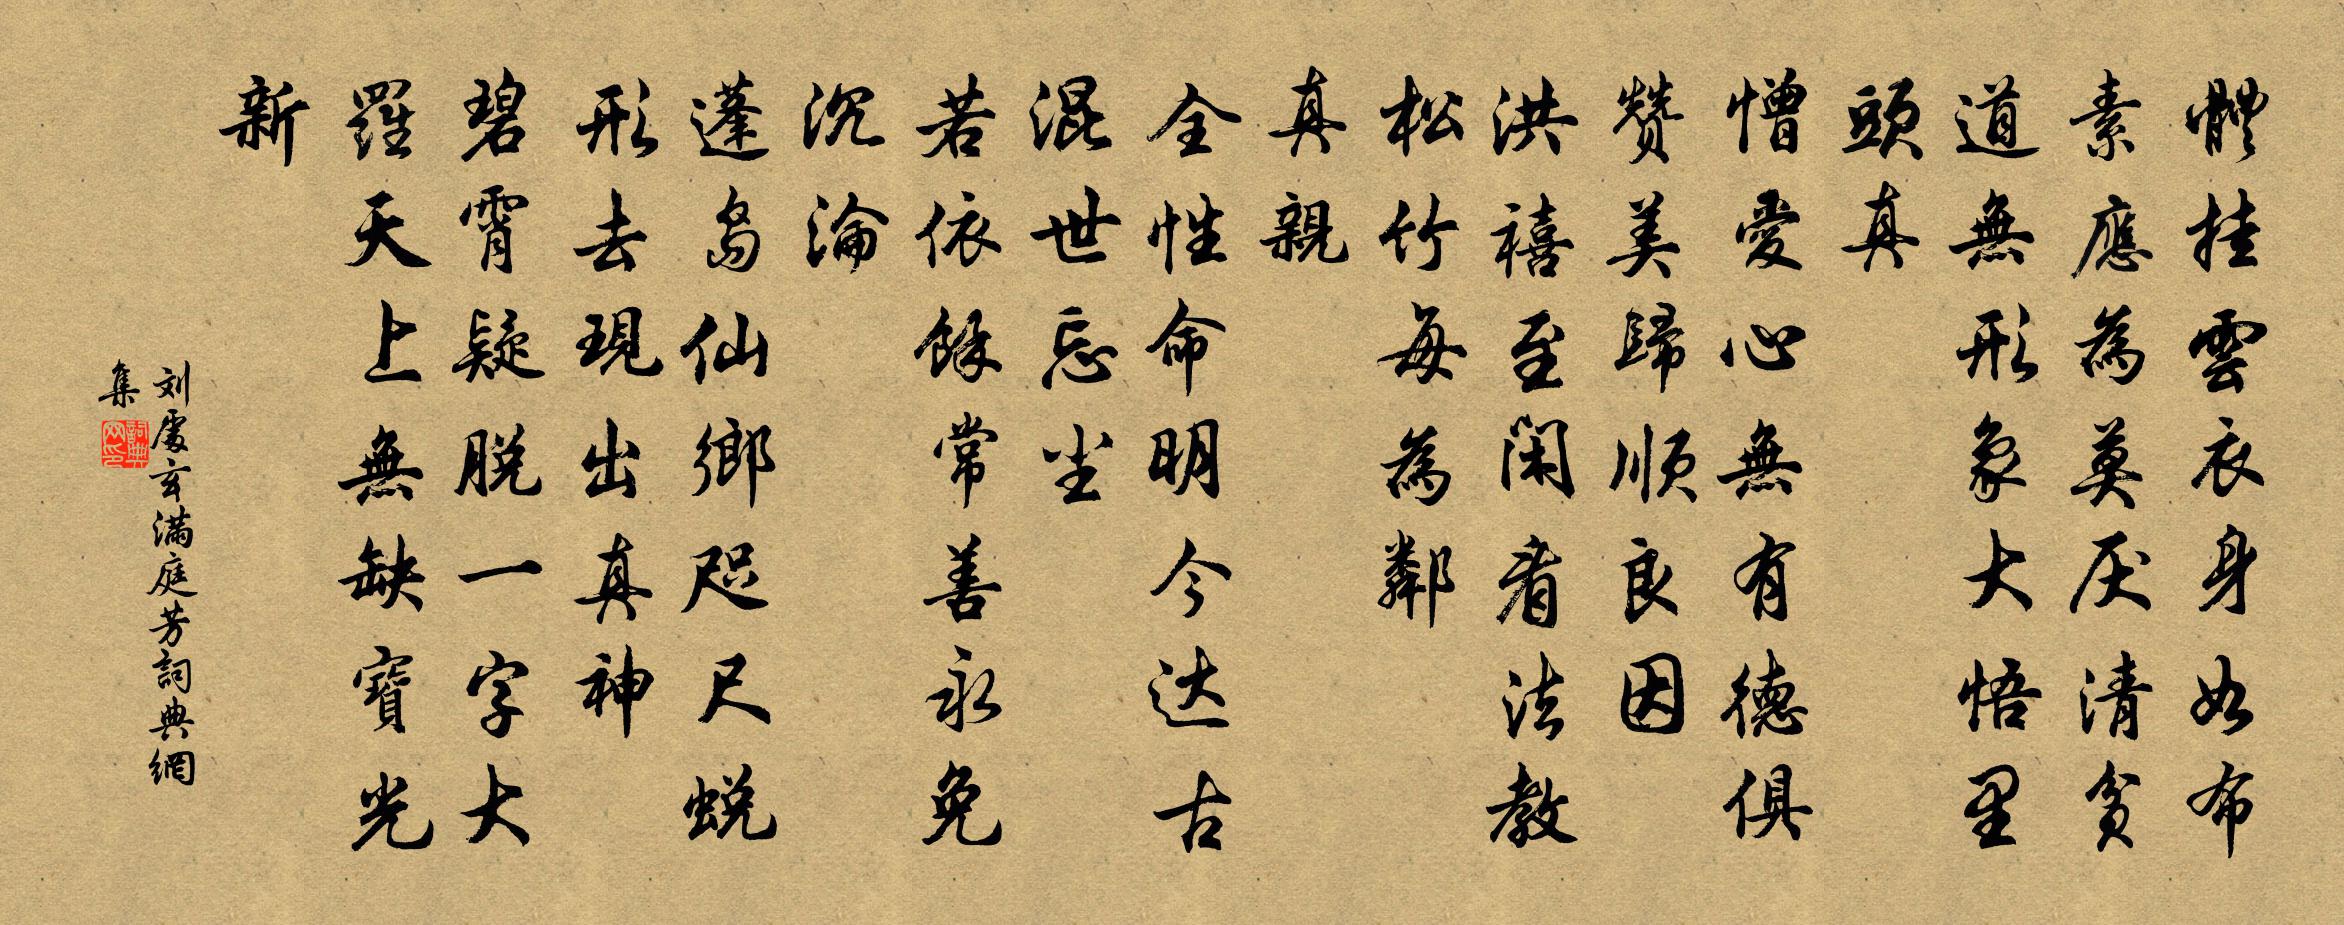 體挂雲衣身如布
素應為莫厌清貧
道無形象大悟里
頭真
憎愛心無有德俱
贊美歸順良因
洪禧至闲看法教
松竹每為鄰
真親
全性命明今达古
混世忘尘
若依餘常善永免
沉淪
蓬岛仙鄉咫尺蜕
形去現出真神
碧霄疑脱一字大
羅天上無缺寶光
新
刘處玄滿庭芳詞典網
集
詞典网印